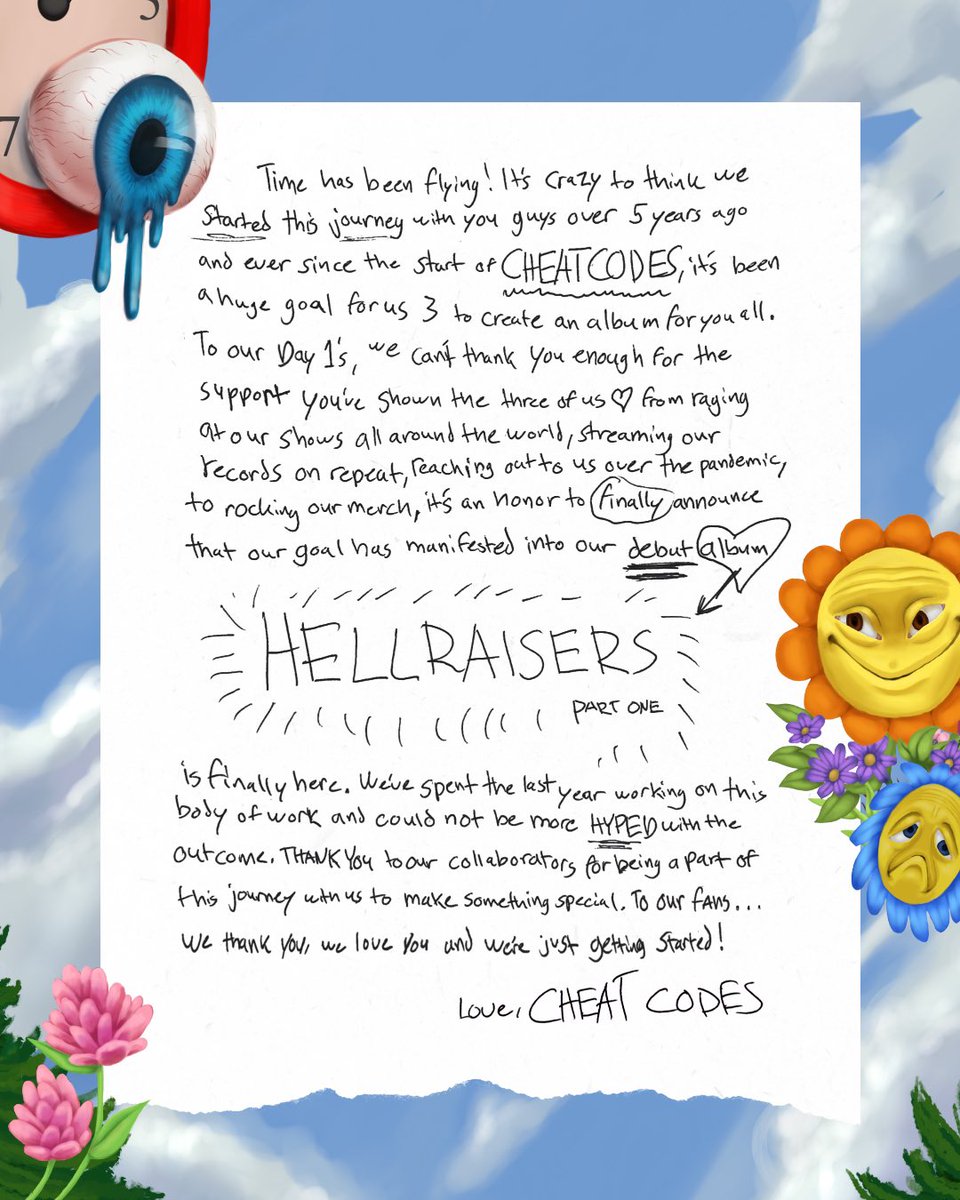 5
7
Time has been flying! It's crazy to think we
started this journey with you guys over 5 years ago
and ever since the start of CHEAT CODES, it's been
a huge goal for us 3 to create an album for you all.
To our Day 1's, we can't thank you enough for the
support you've shown the three of us ♡ from raging
at our shows all around the world, streaming our
records on repeat, reaching out to us over the pandemic,
to rocking our merch, it's an honor to finally announce
that our goal has manifested into our debut album
HELLRAISERS
PART ONE
is finally here. We've spent the last year working on this
body of work and could not be more HYPED with the
outcome. THANK YOU to our collaborators for being a part of
this journey with us to make something special. To our fans...
We thank you, we love you and we're just getting started!
Love, CHEAT CODES